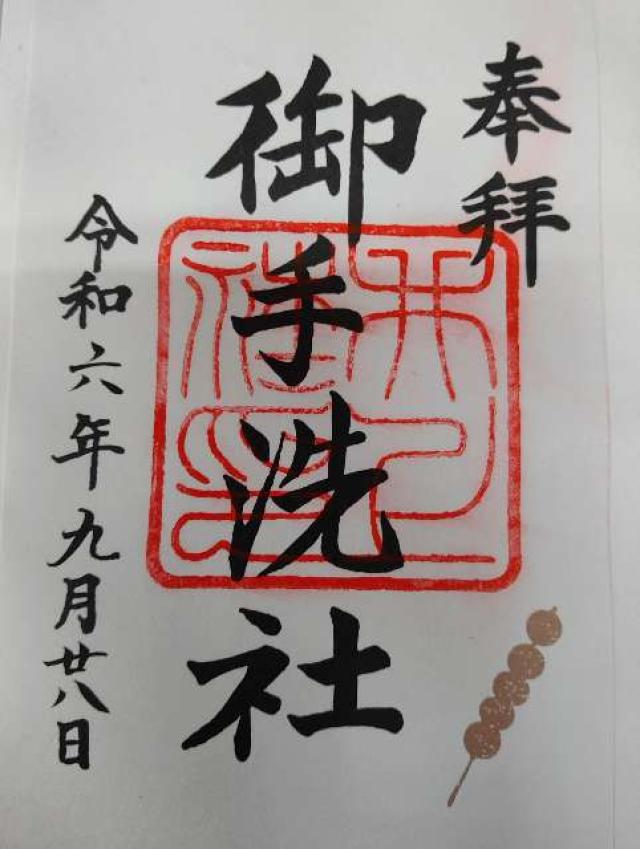 奉拝
御手洗社
令和六年九月廿八日